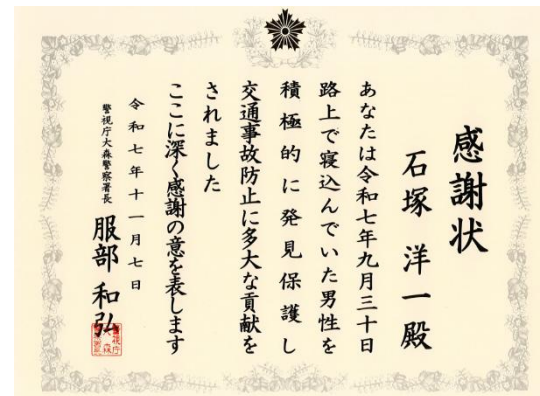 感謝状
石塚 洋一 殿
あなたは令和七年九月三十日
路上で寝込んでいた男性を
積極的に発見保護し
交通事故防止に多大な貢献を
されました
ここに深く感謝の意を表します
令和七年十一月七日
警視庁大森警察署長
服部 和弘